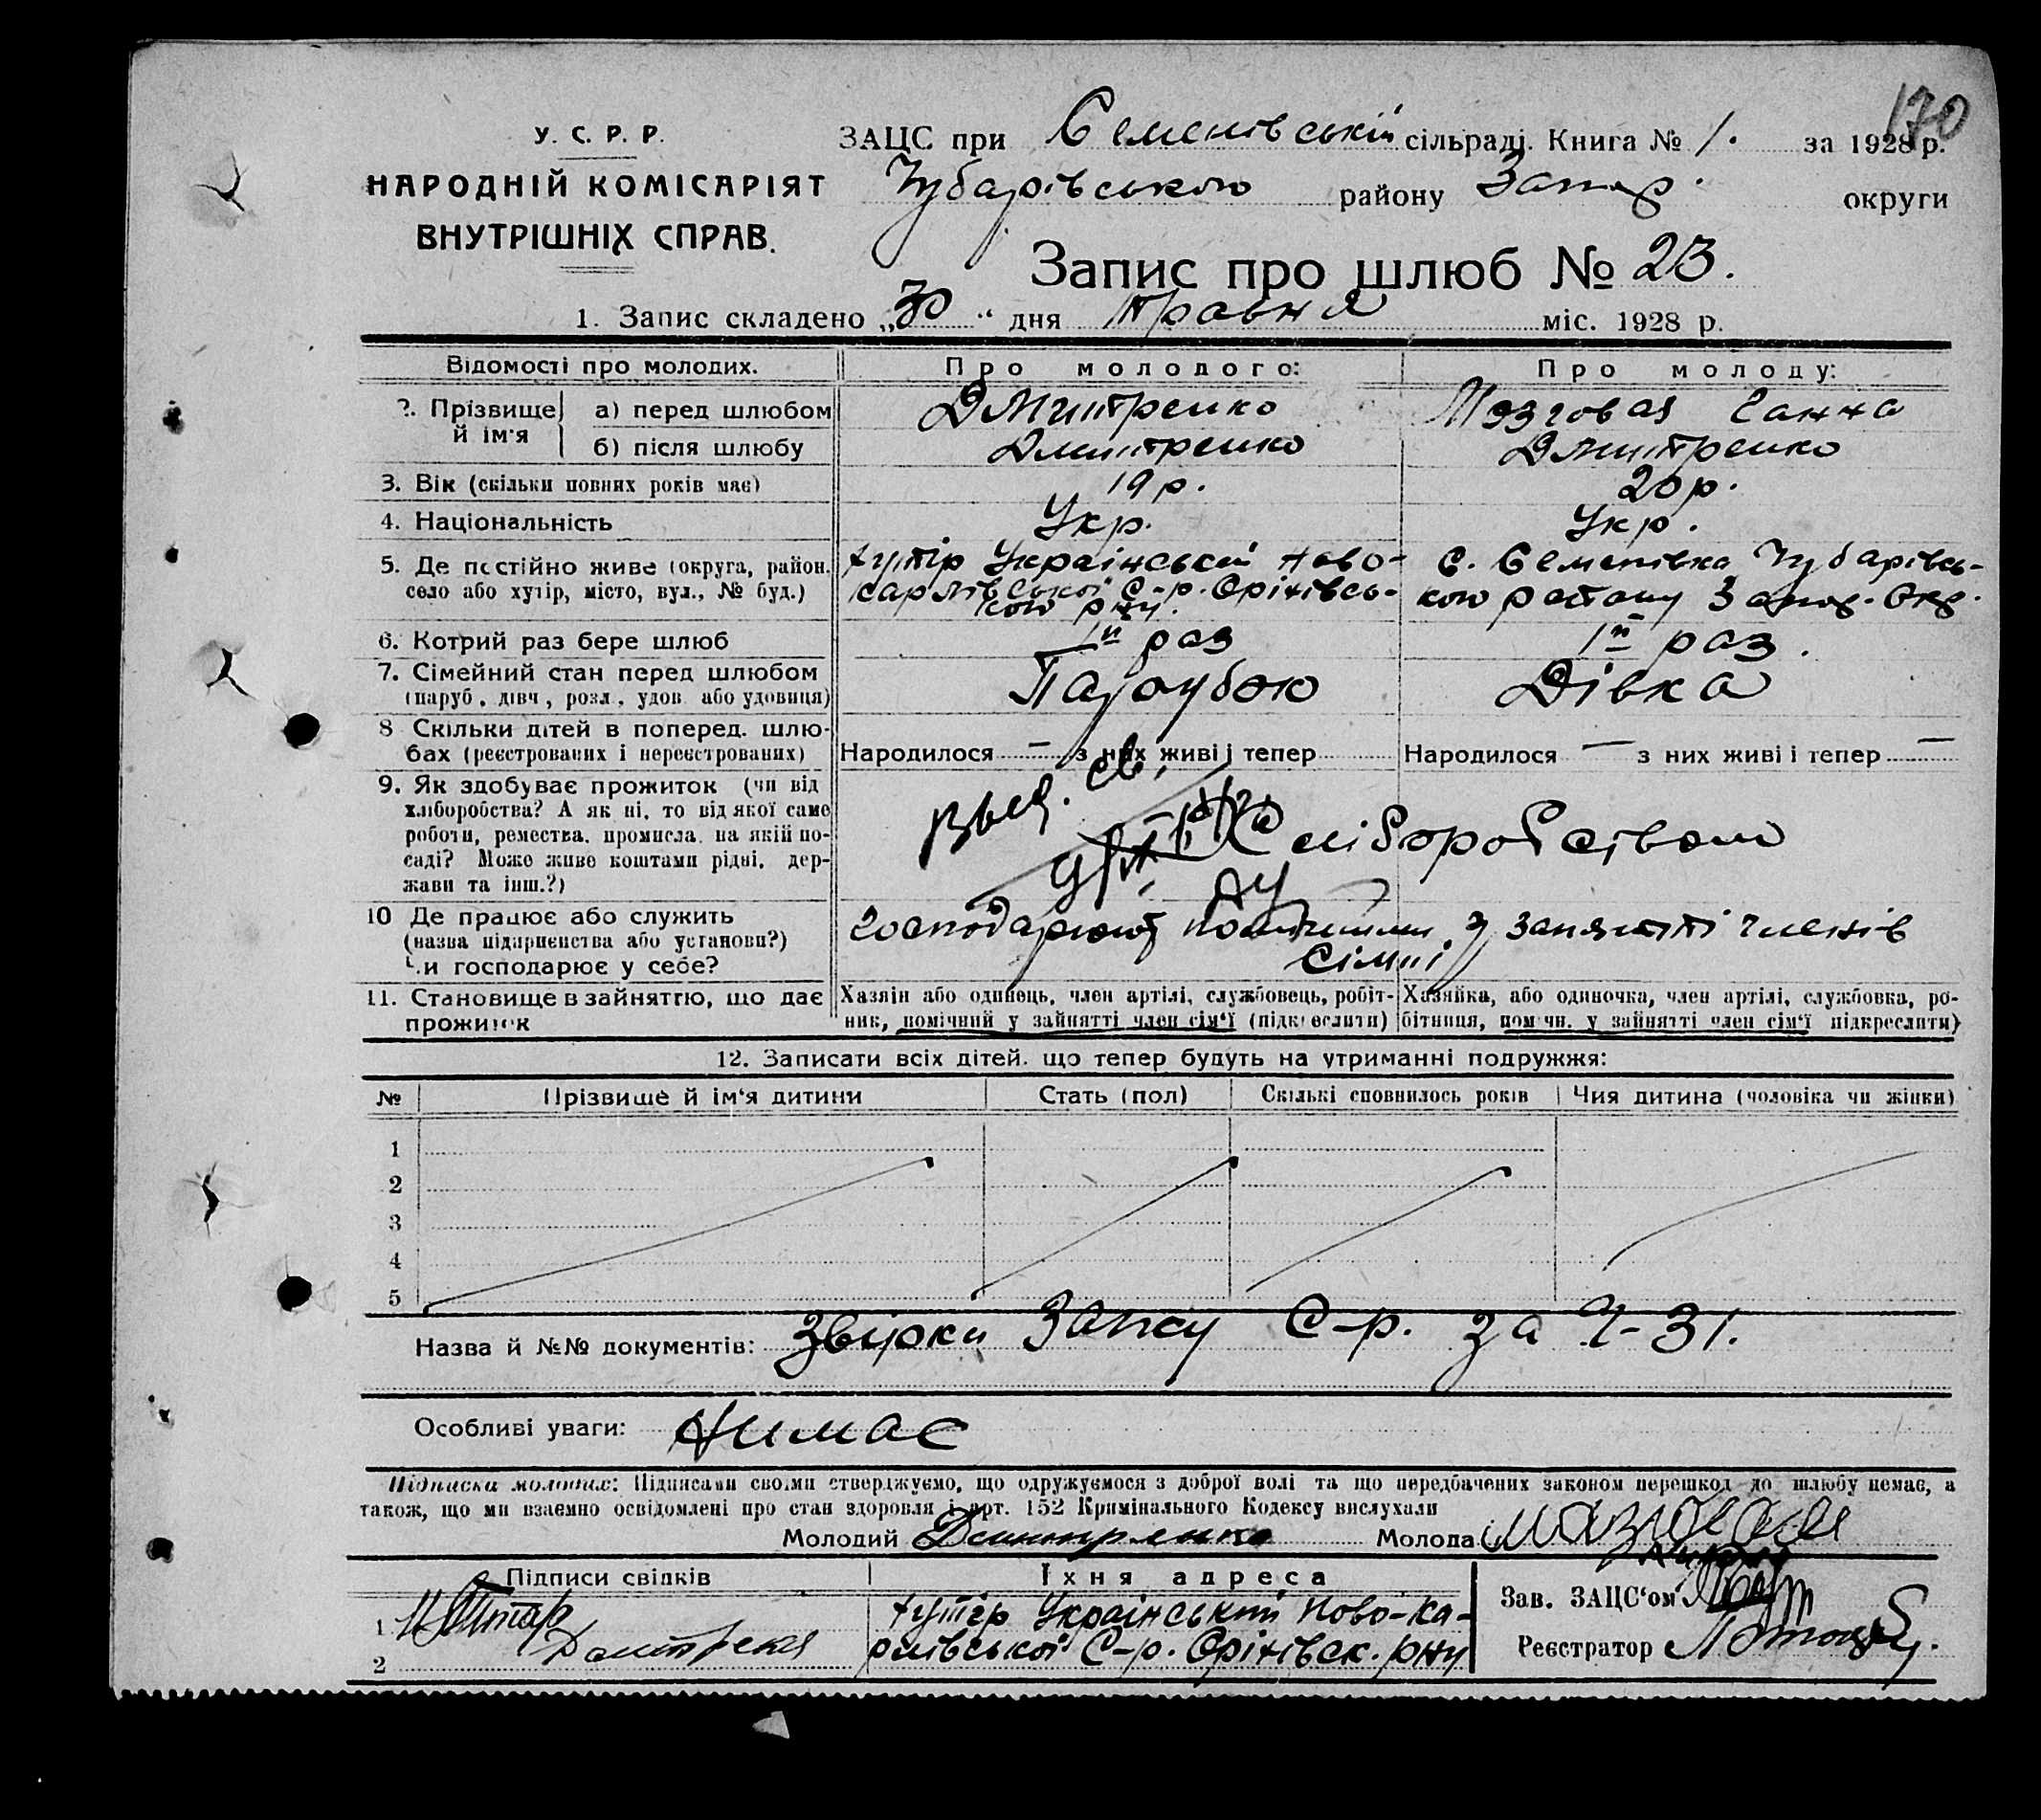 170
У. С. Р. Р.
НАРОДНІЙ КОМІСАРІЯТ
ВНУТРІШНІХ СПРАВ.
ЗАЦС при Семенівській сільраді. Книга № 1. за 1928 р.
Чубарівського району Запор. округи
Запис про шлюб № 23.
1. Запис складено „30“ дня травня міс. 1928 р.
Відомості про молодих. Про молодого: Про молоду:
2. Прізвище й ім'я а) перед шлюбом Дмитренко Мозговая Ганна
б) після шлюбу Дмитренко Дмитренко
3. Вік (скільки повних років має) 19 р. 20 р.
4. Національність Укр. Укр.
5. Де постійно живе (округа, район, хутір Український Ново- с. Семенівка Чубарівсь-
село або хутір, місто, вул., № буд.) карлівської С-р. Оріхівсь- кого району Запор. Окр.
кого р-ну.
6. Котрий раз бере шлюб 1й раз 1й раз.
7. Сімейний стан перед шлюбом Парубок Дівка
(паруб., дівч., розл., удов. або удовиця)
8 Скільки дітей в поперед. шлю- Народилося — з них живі і тепер Народилося — з них живі і тепер —
бах (реєстрованих і нереєстрованих)
9. Як здобуває прожиток (чи від
хліборобства? А як ні, то від якої саме
роботи, ремества, промисла, на якій по- Хліборобством
саді? Може живе коштами рідні, дер-
жави та інш.?)
10 Де працює або служить господарюют помічними у занятті членів
(назва підприємства або установи?) сімпі
Чи господарює у себе?
11. Становище в зайняттю, що дає Хазяїн або одинець, член артілі, службовець, робіт- Хазяйка, або одиночка, член артілі, службовка, ро-
прожиток ник, помічний у зайнятті член сім'ї (підкреслити) бітниця, помічн. у зайнятті член сім'ї підкреслити)
12. Записати всіх дітей, що тепер будуть на утриманні подружжя:
№ Прізвище й ім'я дитини Стать (пол) Скількі сповнилось років Чия дитина (чоловіка чи жінки)
1
2
3
4
5
Назва й №№ документів: Звірки Запису С-р. за Ч- 31.
Особливі уваги: Нимає
Підписка молодих: Підписами своїми стверджуємо, що одружуємося з доброї волі та що передбачених законом перешкод до шлюбу немає, а
також, що ми взаємно освідомлені про стан здоровля і арт. 152 Кримінального Кодексу вислухали
Молодий Дмитренко Молода Мазговая
Підписи свідків Їхня адреса
Зав. ЗАЦС'ом
1 хутір Український Ново-ка-
Дмитренко рлівської С-р. Оріхівск. р-ну
Реєстратор
2